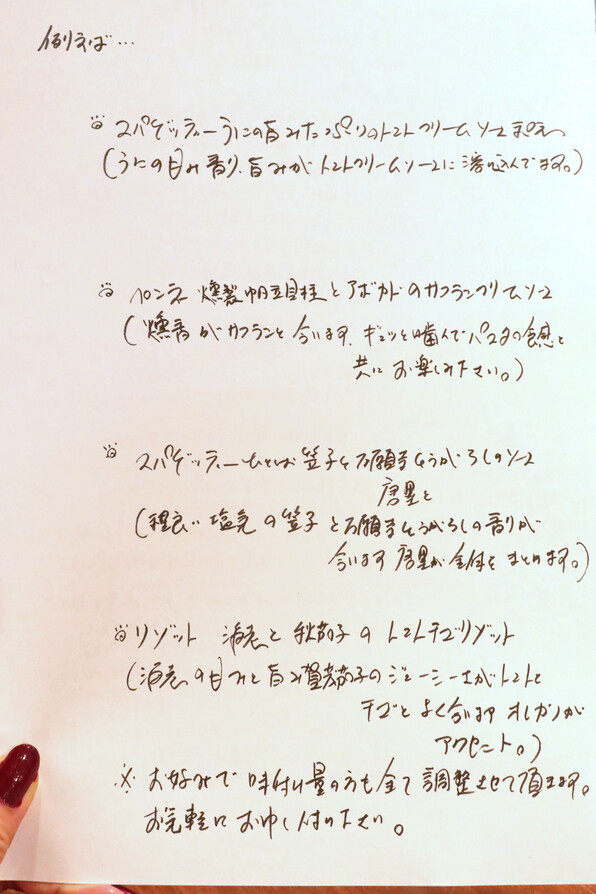 例えば…
スパゲッティーうにの旨みたっぷりのトマトクリームソース
(うにの甘み香り、旨みがトマトクリームソースに溶け込んでます。)
ペンネ 燻製帆立貝柱とアボカドのサフランクリームソース
(燻香がサフランと合います。ギュッと噛んでパスタの食感と
共にお楽しみ下さい。)
スパゲッティー 笠子と万願寺とうがらしのソース
唐墨と
(程良い塩気の笠子と万願寺とうがらしの香りが
合います 唐墨が全体をまとめます。)
リゾット 海老と秋茄子のトマトチーズリゾット
(海老の甘みと旨み賀茂茄子のジューシーさがトマトと
チーズとよく合います が
アクセント。)
※ お好みで味付け量の方も全て調整させて頂きます。
お気軽にお申し付け下さい。